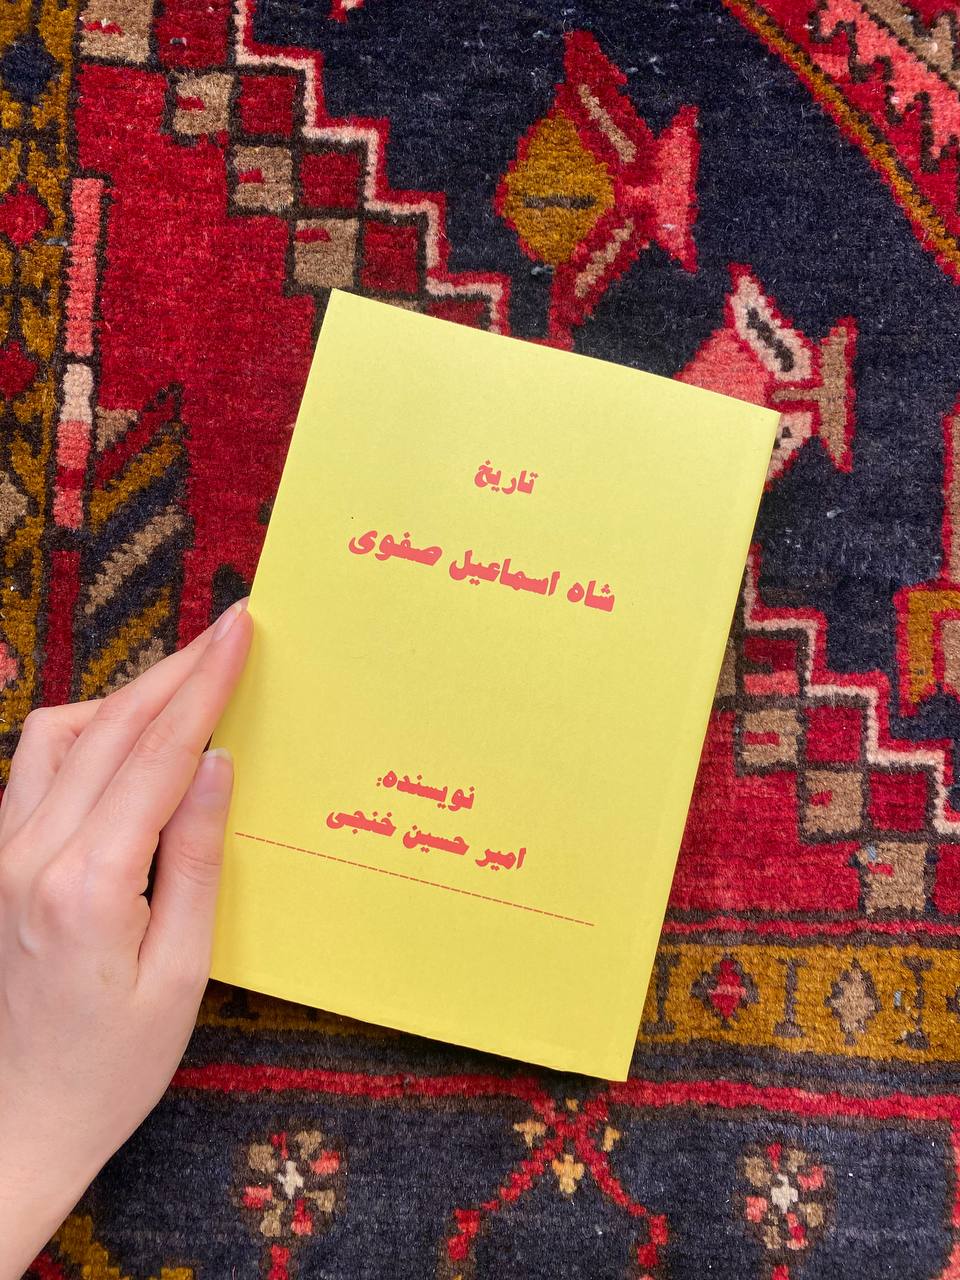 تاریخ
شاه اسماعیل صفوی
نویسنده:
امیر حسین خنجی